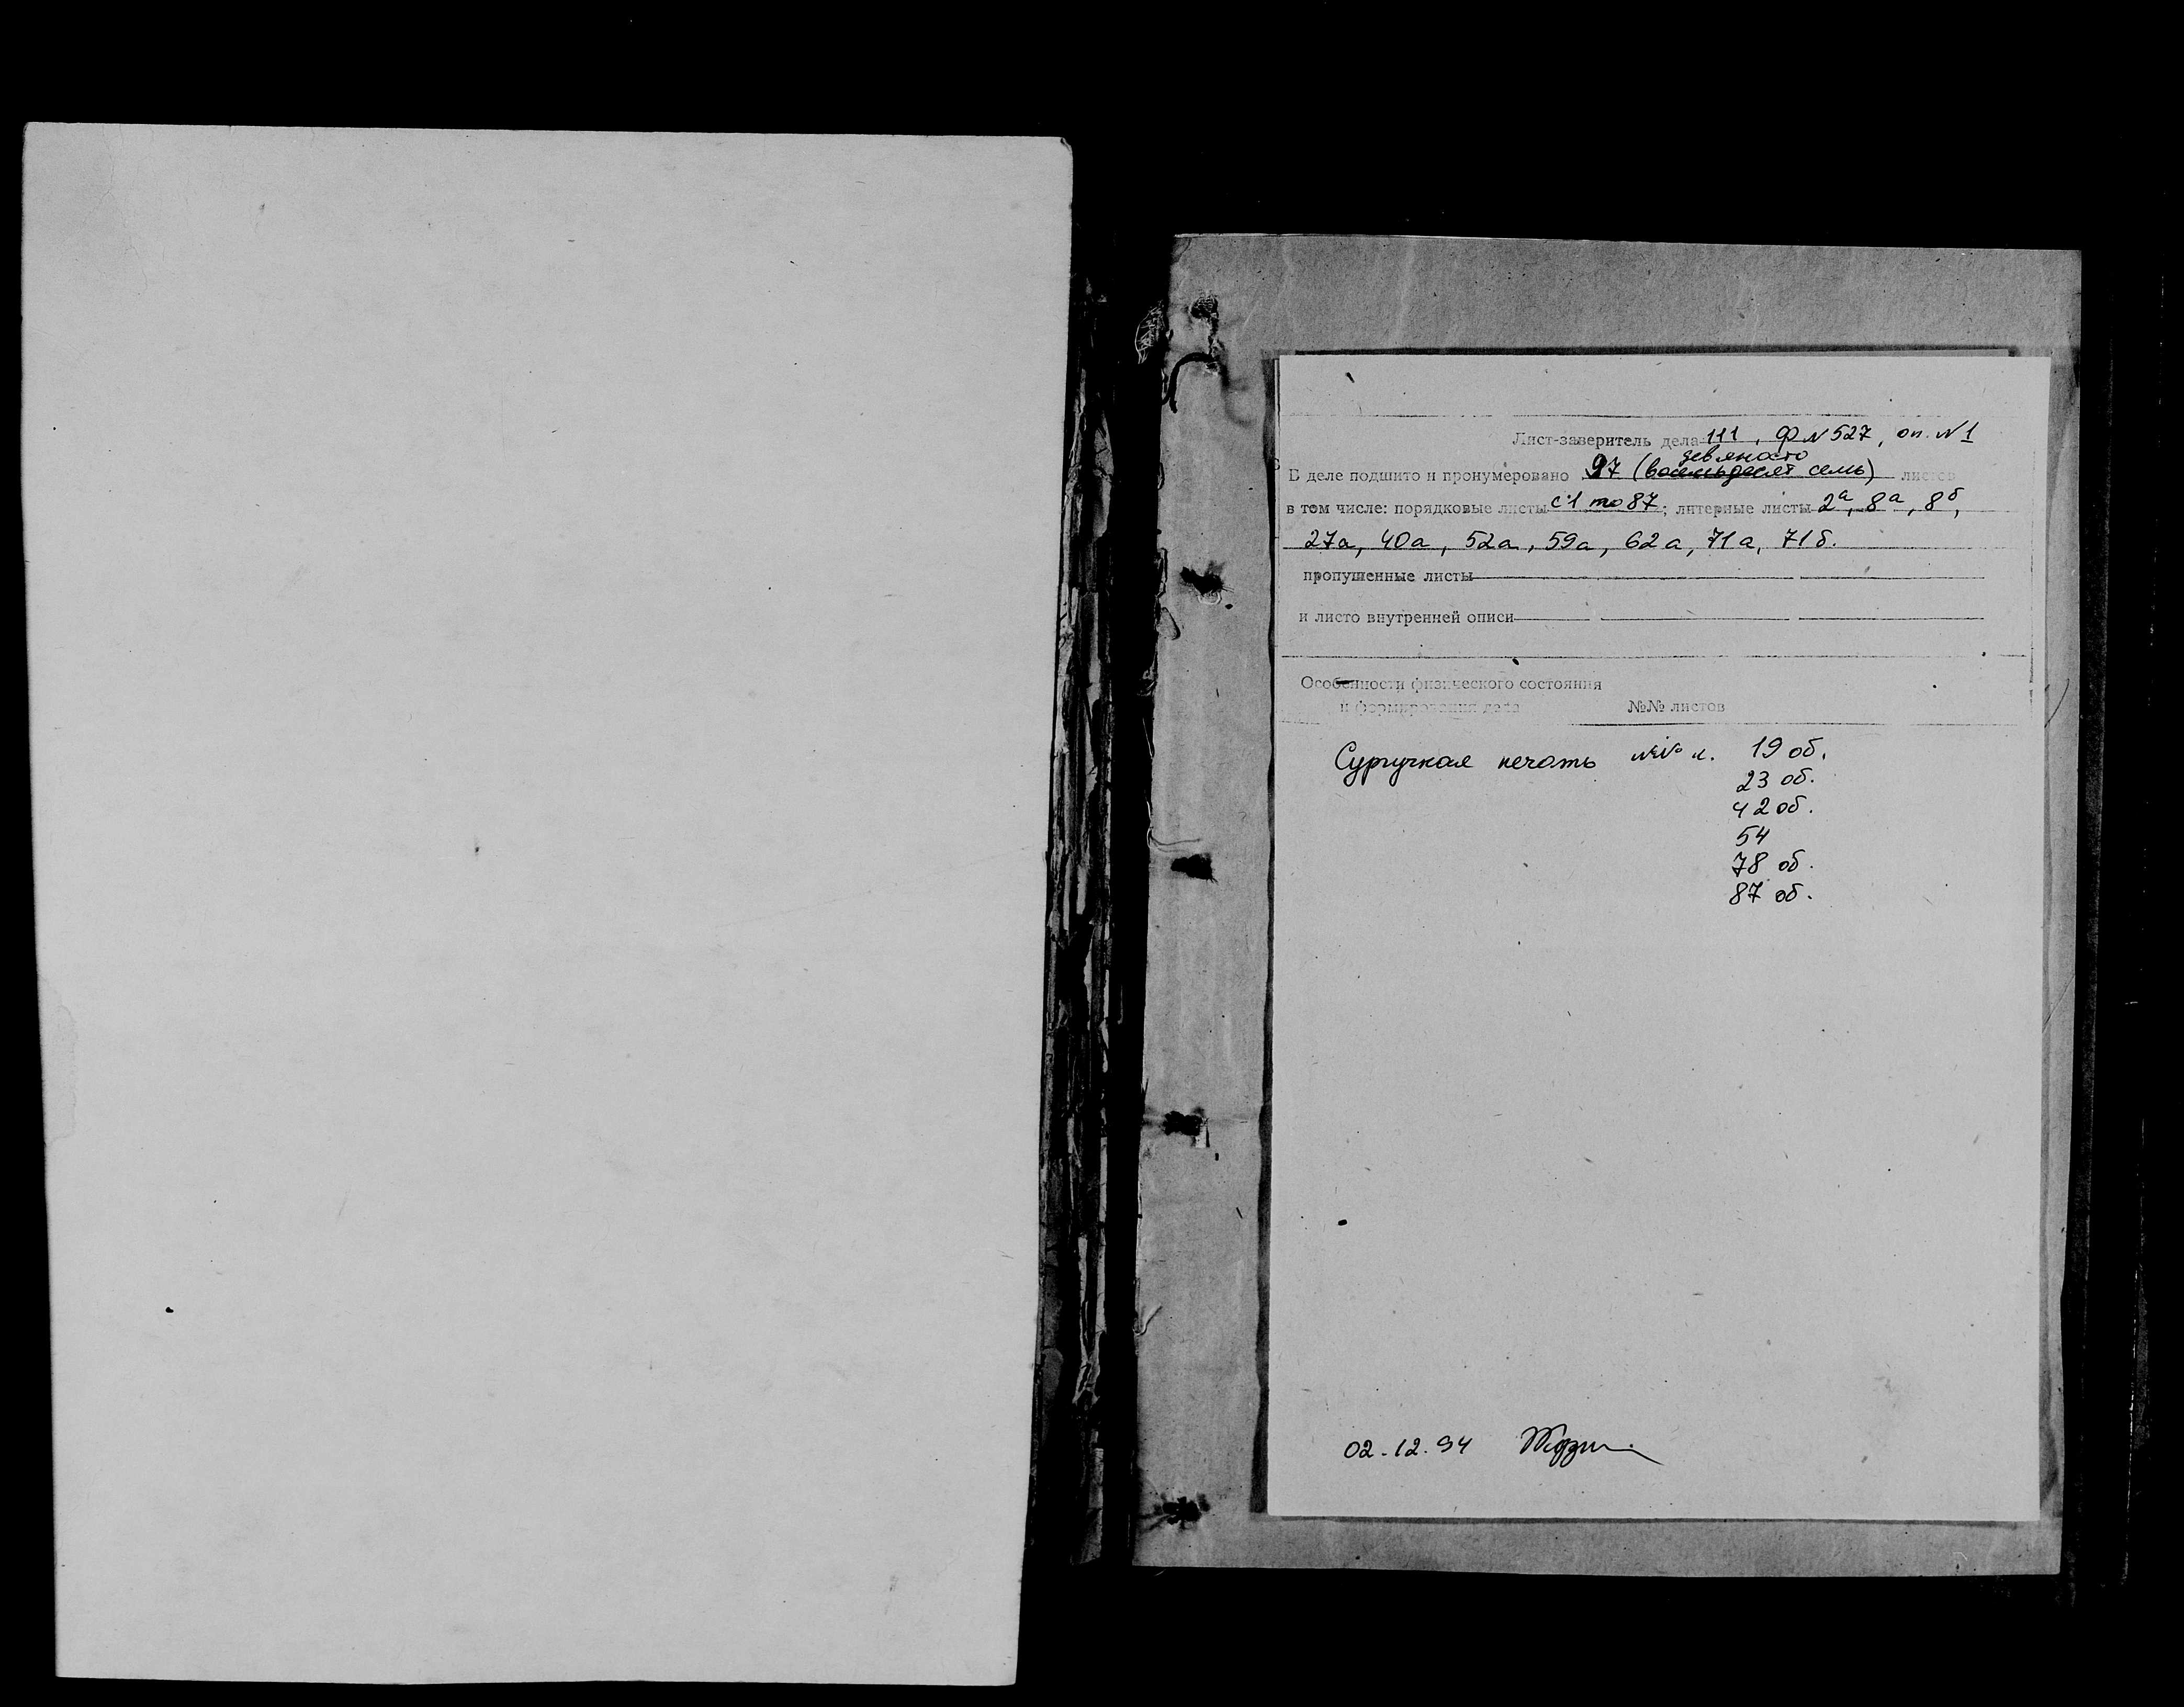 Лист-заверитель дела 111, Ф N 527, оп. N 1
девяносто
В деле подшито и пронумеровано 97 (восемьдесят семь) листов
в том числе: порядковые листы с 1 по 87; литерные листы 2а, 8а, 8б,
27а, 40а, 52а, 59а, 62а, 71а, 71б.
пропущенные листы
и листо внутренней описи
Особенности физического состояния
и формирования дела №№ листов
Сургучная печать №№ л. 19 об.
23 об.
42 об.
54
78 об.
87 об.
02.12.94